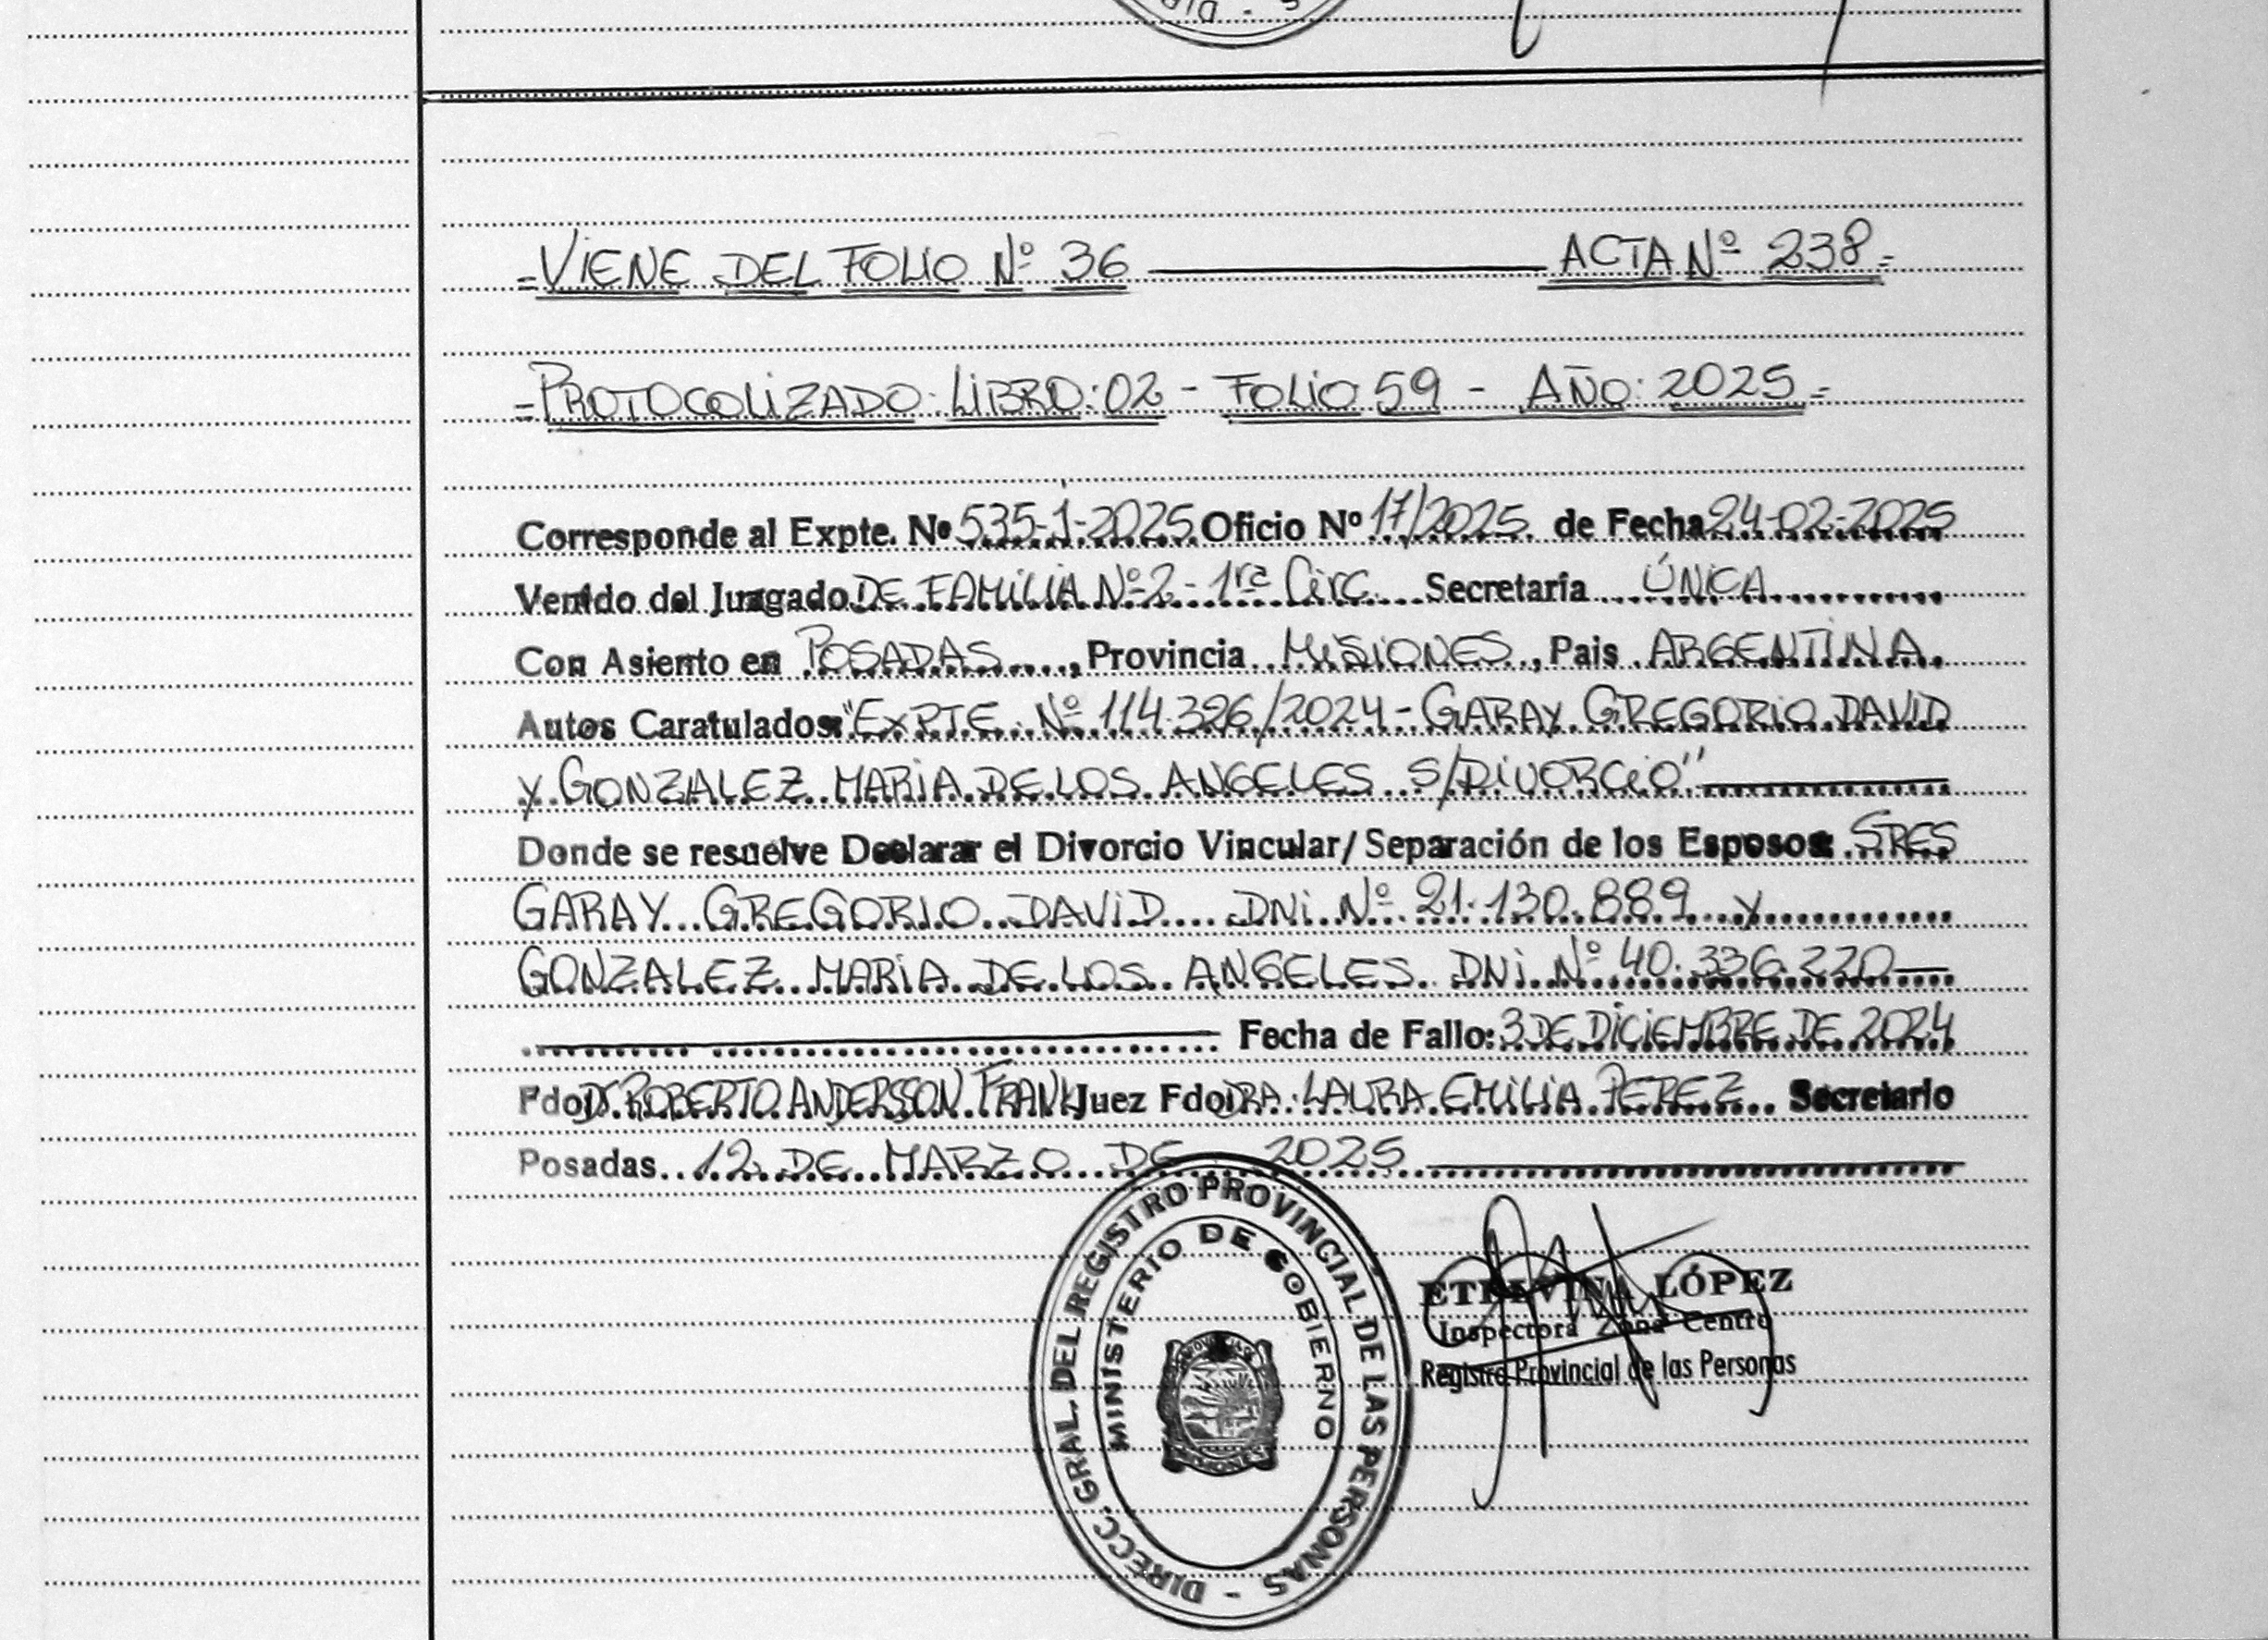 =VIENE DEL FOLIO Nº 36 ACTA Nº 238=
=PROTOCOLIZADO: LIBRO: 02 - FOLIO 59 - AÑO: 2025=
Corresponde al Expte. Nº 535-1-2025 Oficio Nº 17/2025 de Fecha 24-02-2025
Venido del Juzgado DE FAMILIA Nº 2 - 1ra Circ. Secretaría ÚNICA
Con Asiento en POSADAS, Provincia MISIONES, Pais ARGENTINA.
Autos Caratulados: "EXPTE. Nº 114.326/2024 - GARAY GREGORIO DAVID
Y GONZALEZ MARIA DE LOS ANGELES S/DIVORCIO"
Donde se resuelve Declarar el Divorcio Vincular/Separación de los Esposos: SRES
GARAY GREGORIO DAVID DNI Nº 21.130.889 Y
GONZALEZ MARIA DE LOS ANGELES DNI Nº 40.336.220
Fecha de Fallo: 3 DE DICIEMBRE DE 2024
Fdo: Dr. ROBERTO ANDERSSON FRANK Juez Fdo: DRA. LAURA EMILIA PEREZ Secretario
Posadas 12 DE MARZO DE 2025
DIRECC. GRAL. DEL REGISTRO PROVINCIAL DE LAS PERSONAS -
MINISTERIO DE GOBIERNO
ETELVINA LÓPEZ
Inspectora Zona Centro
Registro Provincial de las Personas